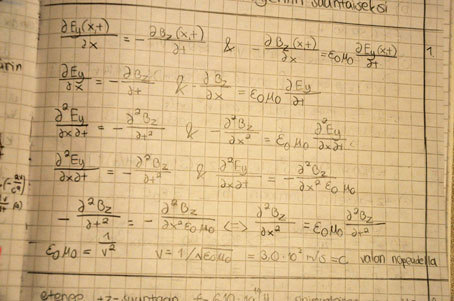 suuntaiseksi
∂Ey(x,t)/∂x = -∂Bz(x,t)/∂t & -∂Bz(x,t)/∂x = ε0μ0 ∂Ey(x,t)/∂t 1.
∂Ey/∂x = -∂Bz/∂t & -∂Bz/∂x = ε0μ0 ∂Ey/∂t
∂²Ey/∂x∂t = -∂²Bz/∂t² & -∂²Bz/∂x² = ε0μ0 ∂²Ey/∂x∂t
∂²Ey/∂x∂t = -∂²Bz/∂t² & ∂²Ey/∂x∂t = -∂²Bz/∂x² ε0μ0
-∂²Bz/∂t² = -∂²Bz/∂x² ε0μ0 <=> ∂²Bz/∂x² = ε0μ0 ∂²Bz/∂t²
ε0μ0 = 1/v² v = 1/√ε0μ0 = 3,0·10⁸ m/s = c valon nopeudella